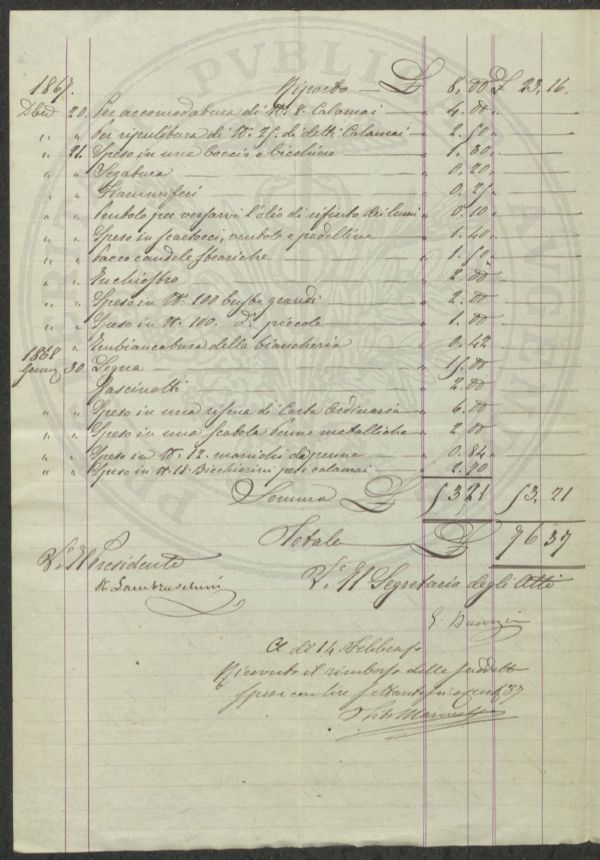 1867. Riporto £ 8,00 £ 23.16.
Dbre 20. Per accomodatura di N. 8. Calamai 4.00
„ „ Per ripulitura di N. 25. di detti Calamai 2.50
„ 21. Speso in una boccia e bicchiere 1.30
„ „ Segatura 0.20
„ „ Fiammiferi 0.25
„ „ Pentolo per versarvi l'olio di rifiuto dei lumi 0.10
„ „ Speso in scartocci, ventole e padelline 1.40
„ „ Pacco candele steariche 1.50
„ „ Inchiostro 2.00
„ „ Speso in N. 100 buste grandi 2.00
„ „ Speso in N. 100. di piccole 1.00
„ „ Imbiancatura della biancheria 0.42
1868
Genn 30. Legna 15.00
Fascinotti 2.00
„ „ Speso in una risma di Carta Ordinaria 6.00
„ „ Speso in una scatola Penne metalliche 2.00
„ „ Speso in N. 12. manichi da penne 0.84
„ „ Speso in N. 18. Bicchierini per i calamai 2.70
Somma £ 53 21 53. 21
Totale £ 76 37
V. Il Presidente
R. Lambruschini
V. Il Segretario degli Atti
A dì 14. Febbraio
Ricevuto il rimborso delle suddette
spese con lire settanta sei e cent 37